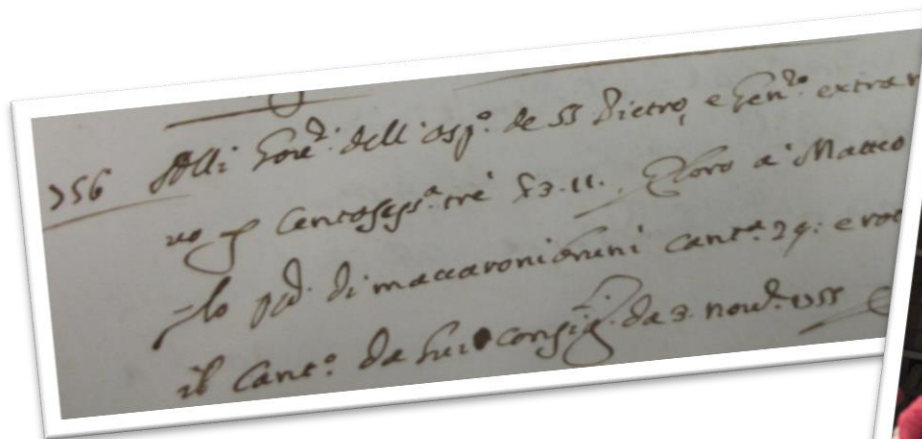 756 Alli Gov.ri dell'osp.o de SS Pietro, e Gen.ro extra
cento sess.a tre 83.11. loro a' Matteo
lo pd. di maccaroni bruni cant.a 29: e rot
il Cant.o da lui consig.ti da 3. nov.e 1755